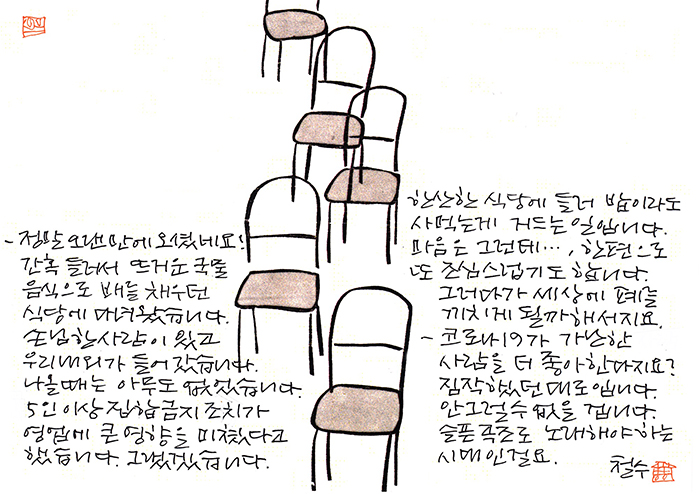 - 정말 오랜만에 오셨네요!
간혹 들러서 뜨거운 국물
음식으로 배를 채우던
식당에 다녀왔습니다.
손님 한사람이 있고
우리내외가 들어 갔습니다.
나올때는 아무도 없었습니다.
5인 이상 집합금지 조치가
영업에 큰 영향을 미쳤다고
했습니다. 그랬겠습니다.
한산한 식당에 들러 밥이라도
사먹는게 거드는 일입니다.
마음은 그런데…, 한편으로
또 조심스럽기도 합니다.
그러다가 세상에 폐를
끼치게 될까해서지요.
- 코로나19가 가난한
사람을 더 좋아한다지요?
짐작했던 대로입니다.
안그럴수 없을 겁니다.
슬픈 곡조로 노래해야 하는
시대인걸요.
철수